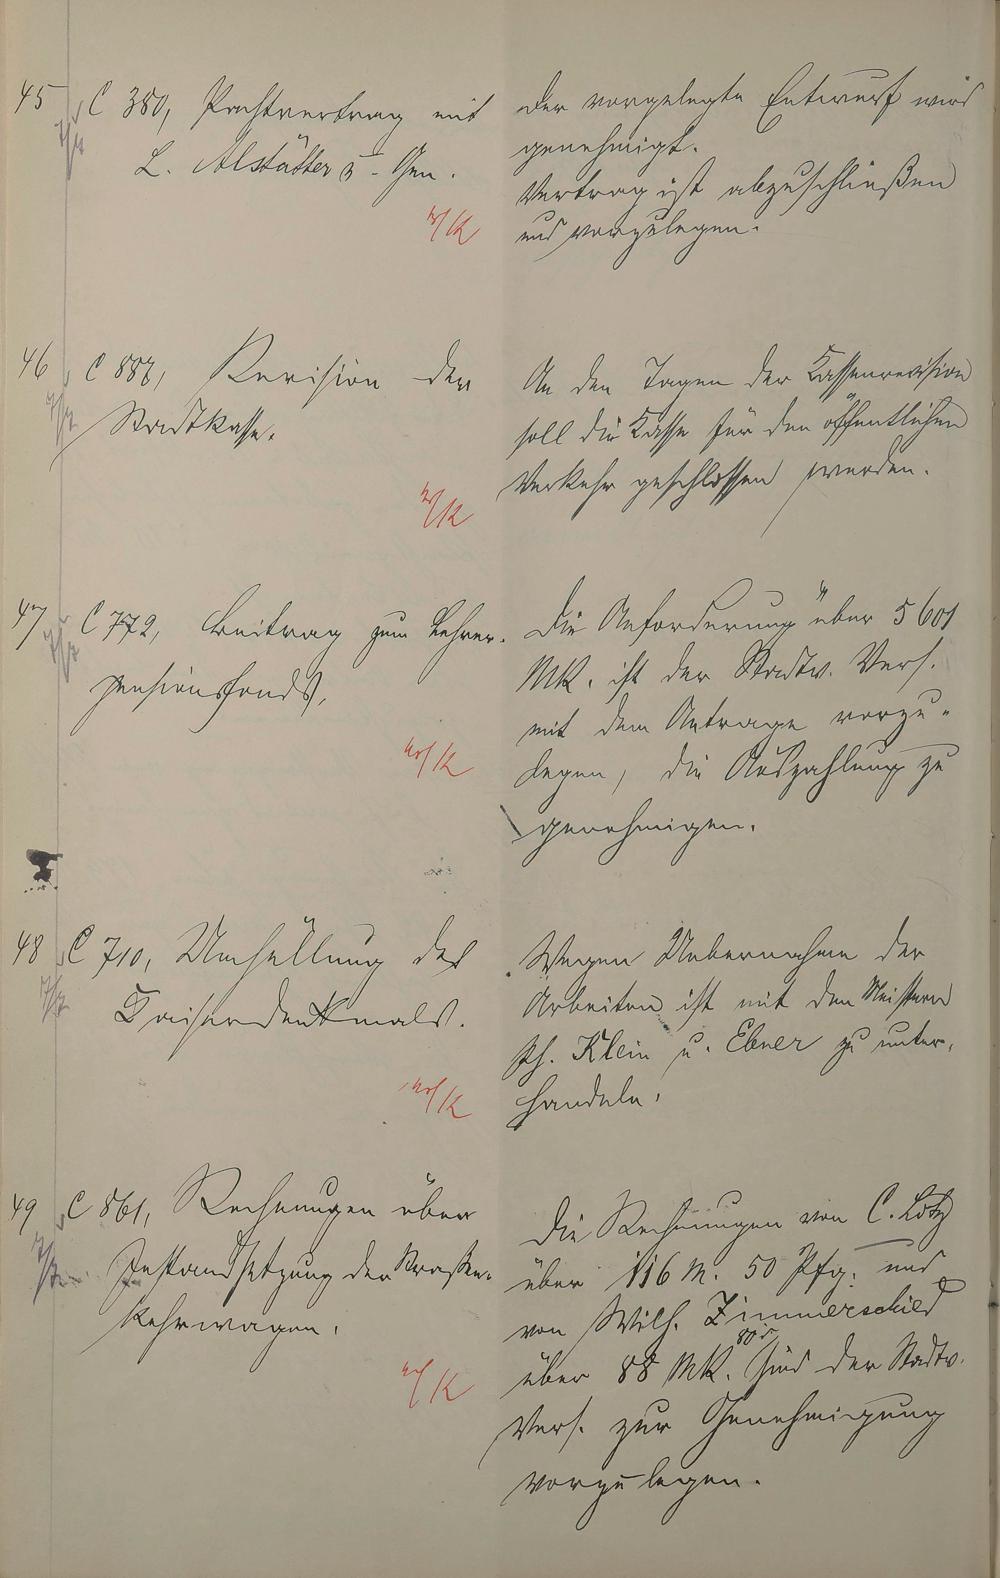 45 C 380, Pachtvertrag mit
L. Alstätter u. Gen.
Der vorgelegte Entwurf wird
genehmigt.
Vertrag ist abzuschließen
und vorzulegen.
46 C 887, Revision der
Stadtkasse.
An den Tagen der Kassenrevision
soll die Kasse für den öffentlichen
Verkehr geschlossen werden.
47 C 772, Beitrag zum Lehrer-
pensionsfonds.
Die Anforderung über 5601
Mk. ist der Stadtv. Vers.
mit dem Antrage vorzu-
legen, die Auszahlung zu
genehmigen.
48 C 710, Umhüllung des
Kaiserdenkmals.
Wegen Uebernahme der
Arbeiten ist mit den Meistern
Ph. Klein u. Ebner zu unter-
handeln.
49 C 861, Rechnungen über
Instandsetzung der Straßen-
kehrwagen.
Die Rechnungen von C. Lotz
über 116 M. 50 Pfg. und
von Wilh. Zimmerschied
über 88 Mk. 80 sind der Stadtv.
Vers. zur Genehmigung
vorzulegen.